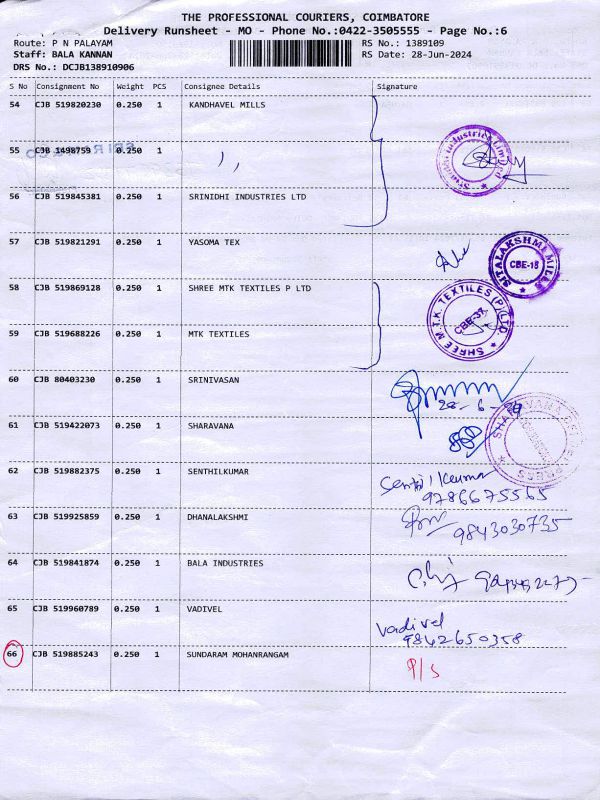 THE PROFESSIONAL COURIERS, COIMBATORE
Delivery Runsheet - MO - Phone No.:0422-3505555 - Page No.:6
Route: P N PALAYAM RS No.: 1389109
Staff: BALA KANNAN RS Date: 28-Jun-2024
DRS No.: DCJB138910906
S No Consignment No Weight PCS Consignee Details Signature
54 CJB 519820230 0.250 1 KANDHAVEL MILLS
55 CJB 1498759 0.250 1 ,,
56 CJB 519845381 0.250 1 SRINIDHI INDUSTRIES LTD
57 CJB 519821291 0.250 1 YASOMA TEX
SITALAKSHMI MILLS
CBE-18
58 CJB 519869128 0.250 1 SHREE MTK TEXTILES P LTD
SHREE M.T.K. TEXTILES (P) LTD.
CBE-37
59 CJB 519688226 0.250 1 MTK TEXTILES
60 CJB 80403230 0.250 1 SRINIVASAN
28-6-24
61 CJB 519422073 0.250 1 SHARAVANA
62 CJB 519882375 0.250 1 SENTHILKUMAR
Senthilkumar
9786675565
63 CJB 519925859 0.250 1 DHANALAKSHMI
9843030735
64 CJB 519841874 0.250 1 BALA INDUSTRIES
65 CJB 519960789 0.250 1 VADIVEL
Vadivel
9842650358
66 CJB 519885243 0.250 1 SUNDARAM MOHANRANGAM P/S